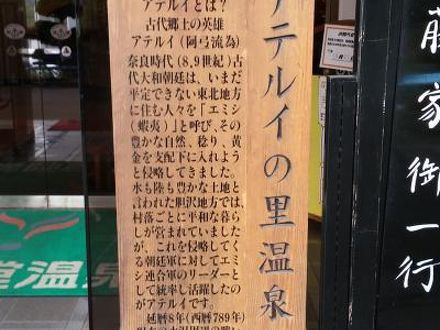 アテルイの里温泉
アテルイとは？
古代郷土の英雄
アテルイ（阿弖流為）
奈良時代（8,9世紀）古
代大和朝廷は、いまだ
平定できない東北地方
に住む人々を「エミシ
（蝦夷）」と呼び、その
豊かな自然、稔り、黄
金を支配下に入れよう
と侵略してきました。
水も陸も豊かな土地と
言われた胆沢地方では、
村落ごとに平和な暮ら
しが営まれていました
が、これを侵略してく
る朝廷軍に対してエミ
シ連合軍のリーダーと
して統率し活躍したの
がアテルイです。
延暦8年（西暦789年）
藤家御一行
堂温泉